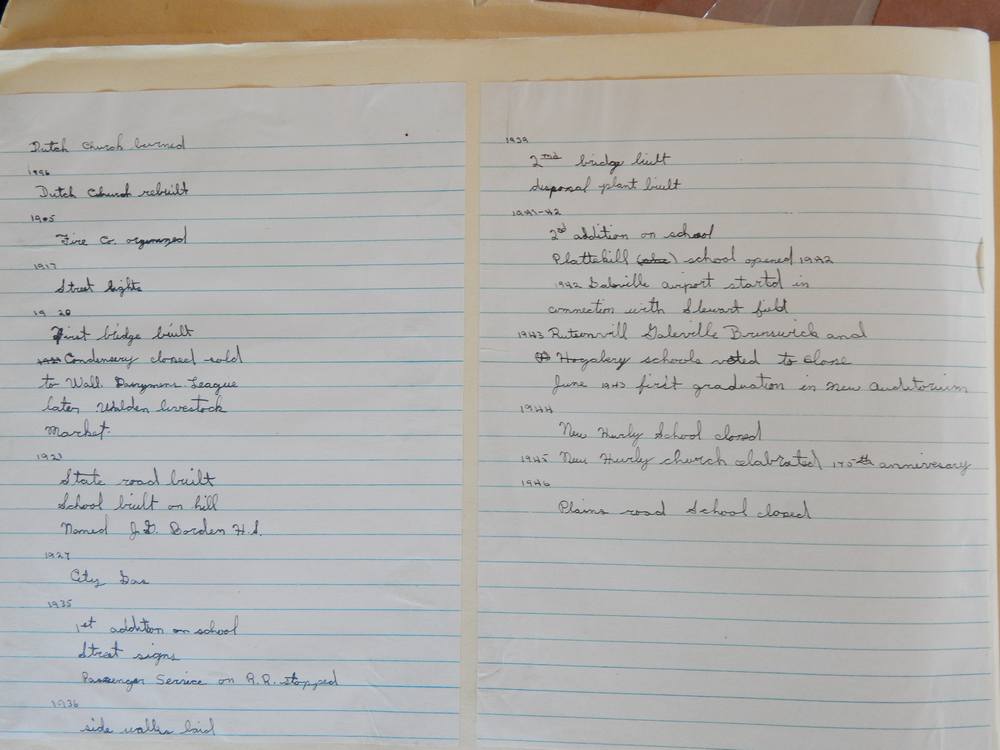 Dutch Church burned
1896
Dutch Church rebuilt
1905
Fire Co. organized
1917
Street lights
1920
First bridge built
Condensery closed sold
to Wall. Dairymens League
later Walden livestock
Market.
State road built
School built on hill
Named J.G. Borden H.S.
1927
City Gas
1935
1st addition on school
Street signs
Passenger Service on R.R. stopped
1936
side walks laid
1939
2nd bridge built
disposal plant built
1941-42
2nd addition on school
Plattekill school opened 1942
1942 Galeville airport started in
connection with Stewart field
1943 Rutsonvill Galeville Brunswick and
Hogabery schools voted to close
June 1943 first graduation in new auditorium
1944
New Hurly School closed
1945 New Hurly church celabrated 175th anniversary
1946
Plains road School closed